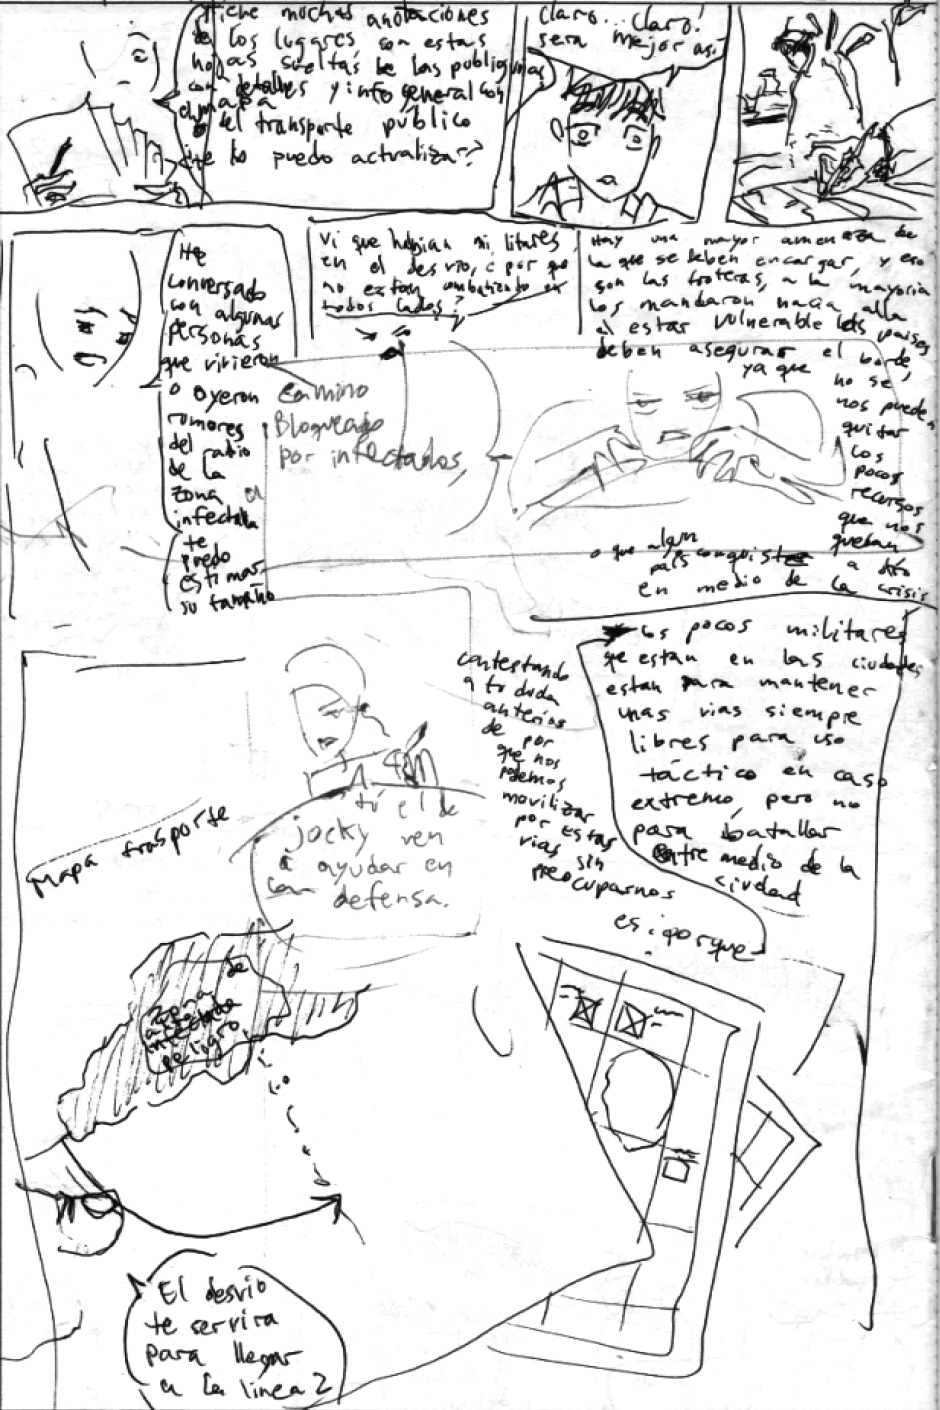 tiene muchas anotaciones
de los lugares, son estas
hojas sueltas de las publi
con detalles y info general con
el mapa
del transporte público
lo puedo actualizar?
claro...claro!
sera mejor así
He
conversado
con algunas
personas
que vivieron
o oyeron
rumores
del radio
de la
zona
infectada
te
puedo
estimar
su tamaño
Vi que habian militares
en el desvio, ¿por que
no estan combatiendo en
todos lados?
Hay una mayor amenaza de
la que se deben encargar, y eso
son las fronteras, a la mayoria
los mandaron hacia alla
al estar vulnerable los paises
deben asegurar el borde,
ya que
no se
nos pueden
quitar
los
pocos
recursos
que nos
quedan
o que algun
pais conquiste a otro
en medio de la crisis
Camino
Bloqueado
por infectados,
contestando
a tu duda
anterior
de por
que nos
podemos
movilizar
por estas
vias sin
preocuparnos
es: porque
los pocos militares
que estan en las ciudades
estan para mantener
unas vias siempre
libres para uso
táctico en caso
extremo, pero no
para batallar
entre medio de la
ciudad
tú el de
jocky ven
a ayudar en
defensa.
mapa trasporte
Zona de
infectada
peligro
El desvio
te servira
para llegar
a la linea 2